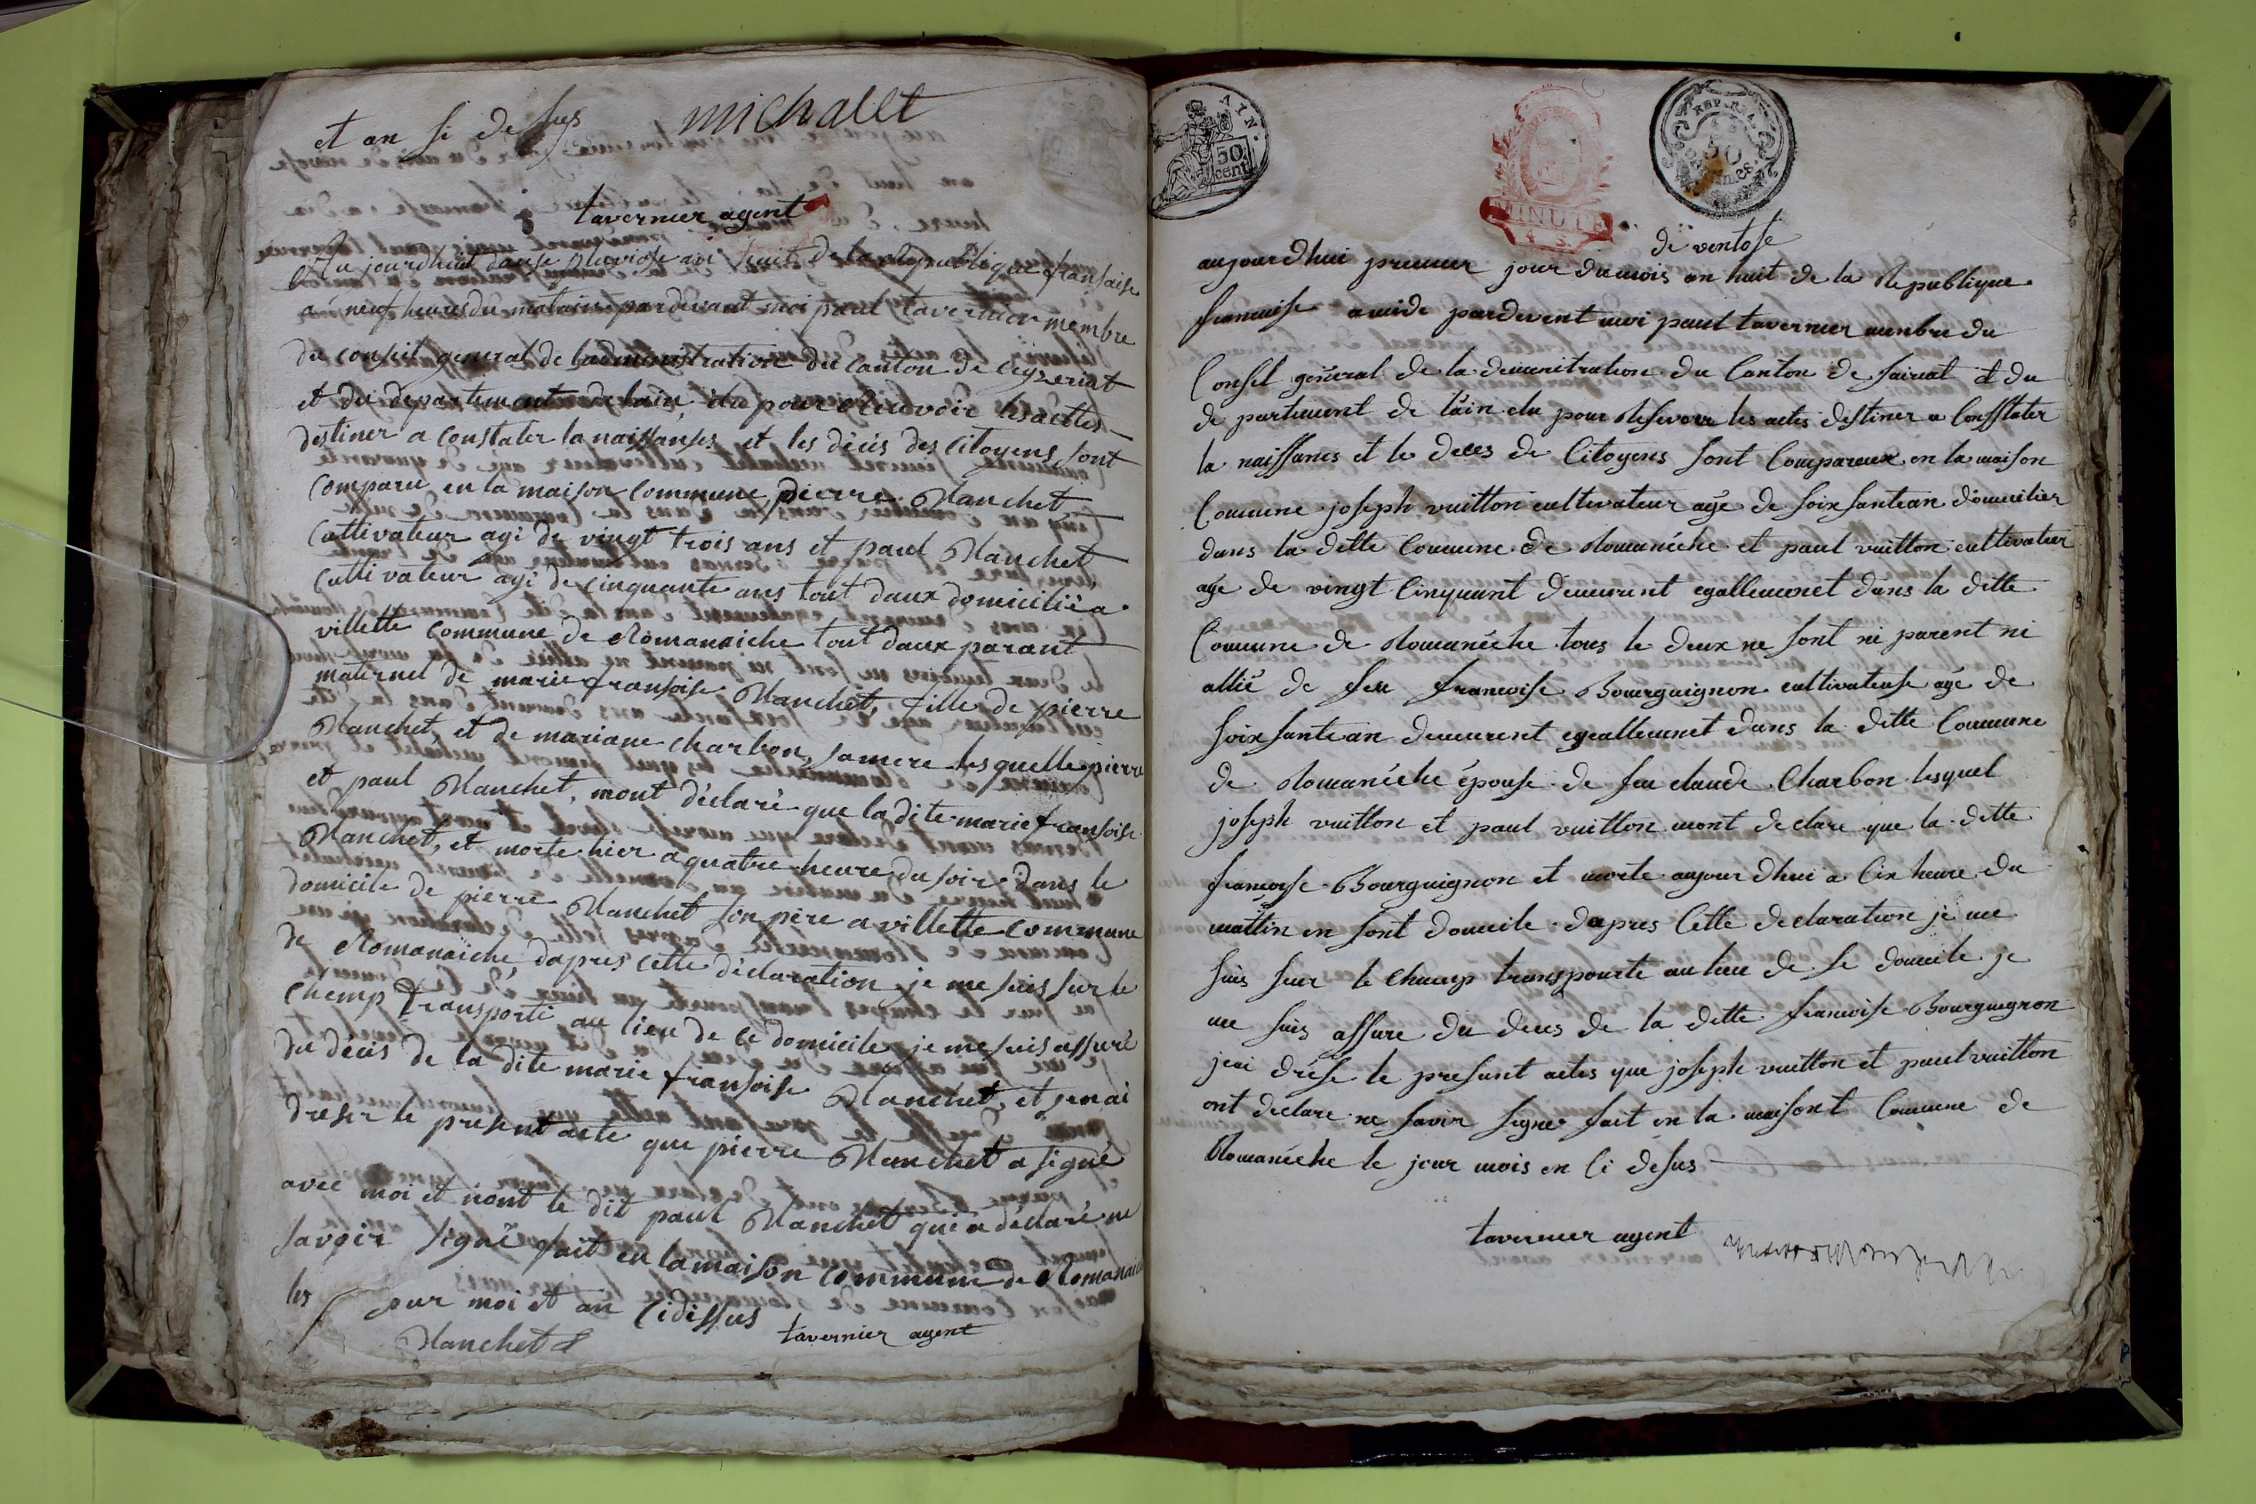 et an si desus michalet
tavernier agent
Au jourdhuit douse pluviose an huit de la republique fransaise
a neuf heures du matain par devant moi paul tavernier membre
du conseil general de ladministration du Canton de Ceyzeriat
et du departement de lain, élu pour Recevoir les acttes
destiner a constater la naissanses et les décès des Citoyens sont
Comparu en la maison commune, pierre Blanchet
Cultivateur agé de vingt trois ans et paul Blanchet
Cultivateur agé de cinquante ans tout daux domicilié a
villette commune de Romanaiche tout daux parant
maternel de marie fransoise Blanchet, fille de pierre
Blanchet, et de mariane charbon, sa mere lesquelle pierre
et paul Blanchet, mont déclaré que la dite marie fransoise
Blanchet, et morte hier a quatre heure du soir dans le
domicile de pierre Blanchet son père a villette commune
de Romanaiche dapres cette déclaration je me suis sur le
Chemp transporté au lieu de ce domicile je me suis assuré
du décès de la dite marie fransoise Blanchet, et jenai
dreser le present acte que pierre Blanchet a signé
avec moi et nont le dit paul Blanchet qui a déclaré ne
savoir signé fait en la maison commune de Romanai
les jour moi et an Cidissus
Blanchet tavernier agent
AIN.
50
cent
MINUTE
REP. FRA.
50
de ventose
aujourdhui premier jour du mois an huit de la Republique
francaise a midi pardevent moi paul tavernier menbre du
Consel general de la deminitration du Canton de sairiat et du
departement de l'ain elu pour Resevoir les actes destiner a Consstater
la naissances et le deces de Citoyens sont Compareux en la maison
Comune joseph vuitton cultivateur agé de soixsantean domicilier
dans la ditte Comune de Romanéche et paul vuitton cultivateur
age de vingt Cinquant demeurent egallement dans la ditte
Comune de Romanéche tous le deux ne sont ni parent ni
allié de feu francoise Bourguignon cultivateuse agé de
soixsantean demeurent egeallement dans la ditte Comune
de Romanéche épouse de feu claude Charbon lesquel
joseph vuitton et paul vuitton mont declare que la ditte
francoise Bourguignon et morte aujour dhui a Cix heure du
mattin en sont domicile dapres Cette declaration je me
suis seur le Champ transpourte au lieu de se domicile je
me suis assure du deces de la ditte francoise Bourguignon
jeai drése le presant actes que joseph vuitton et paul vuitton
ont declare ne savoir signer fait en la maisont Comune de
Romanéche le jour mois en Ci desus
tavernier agent